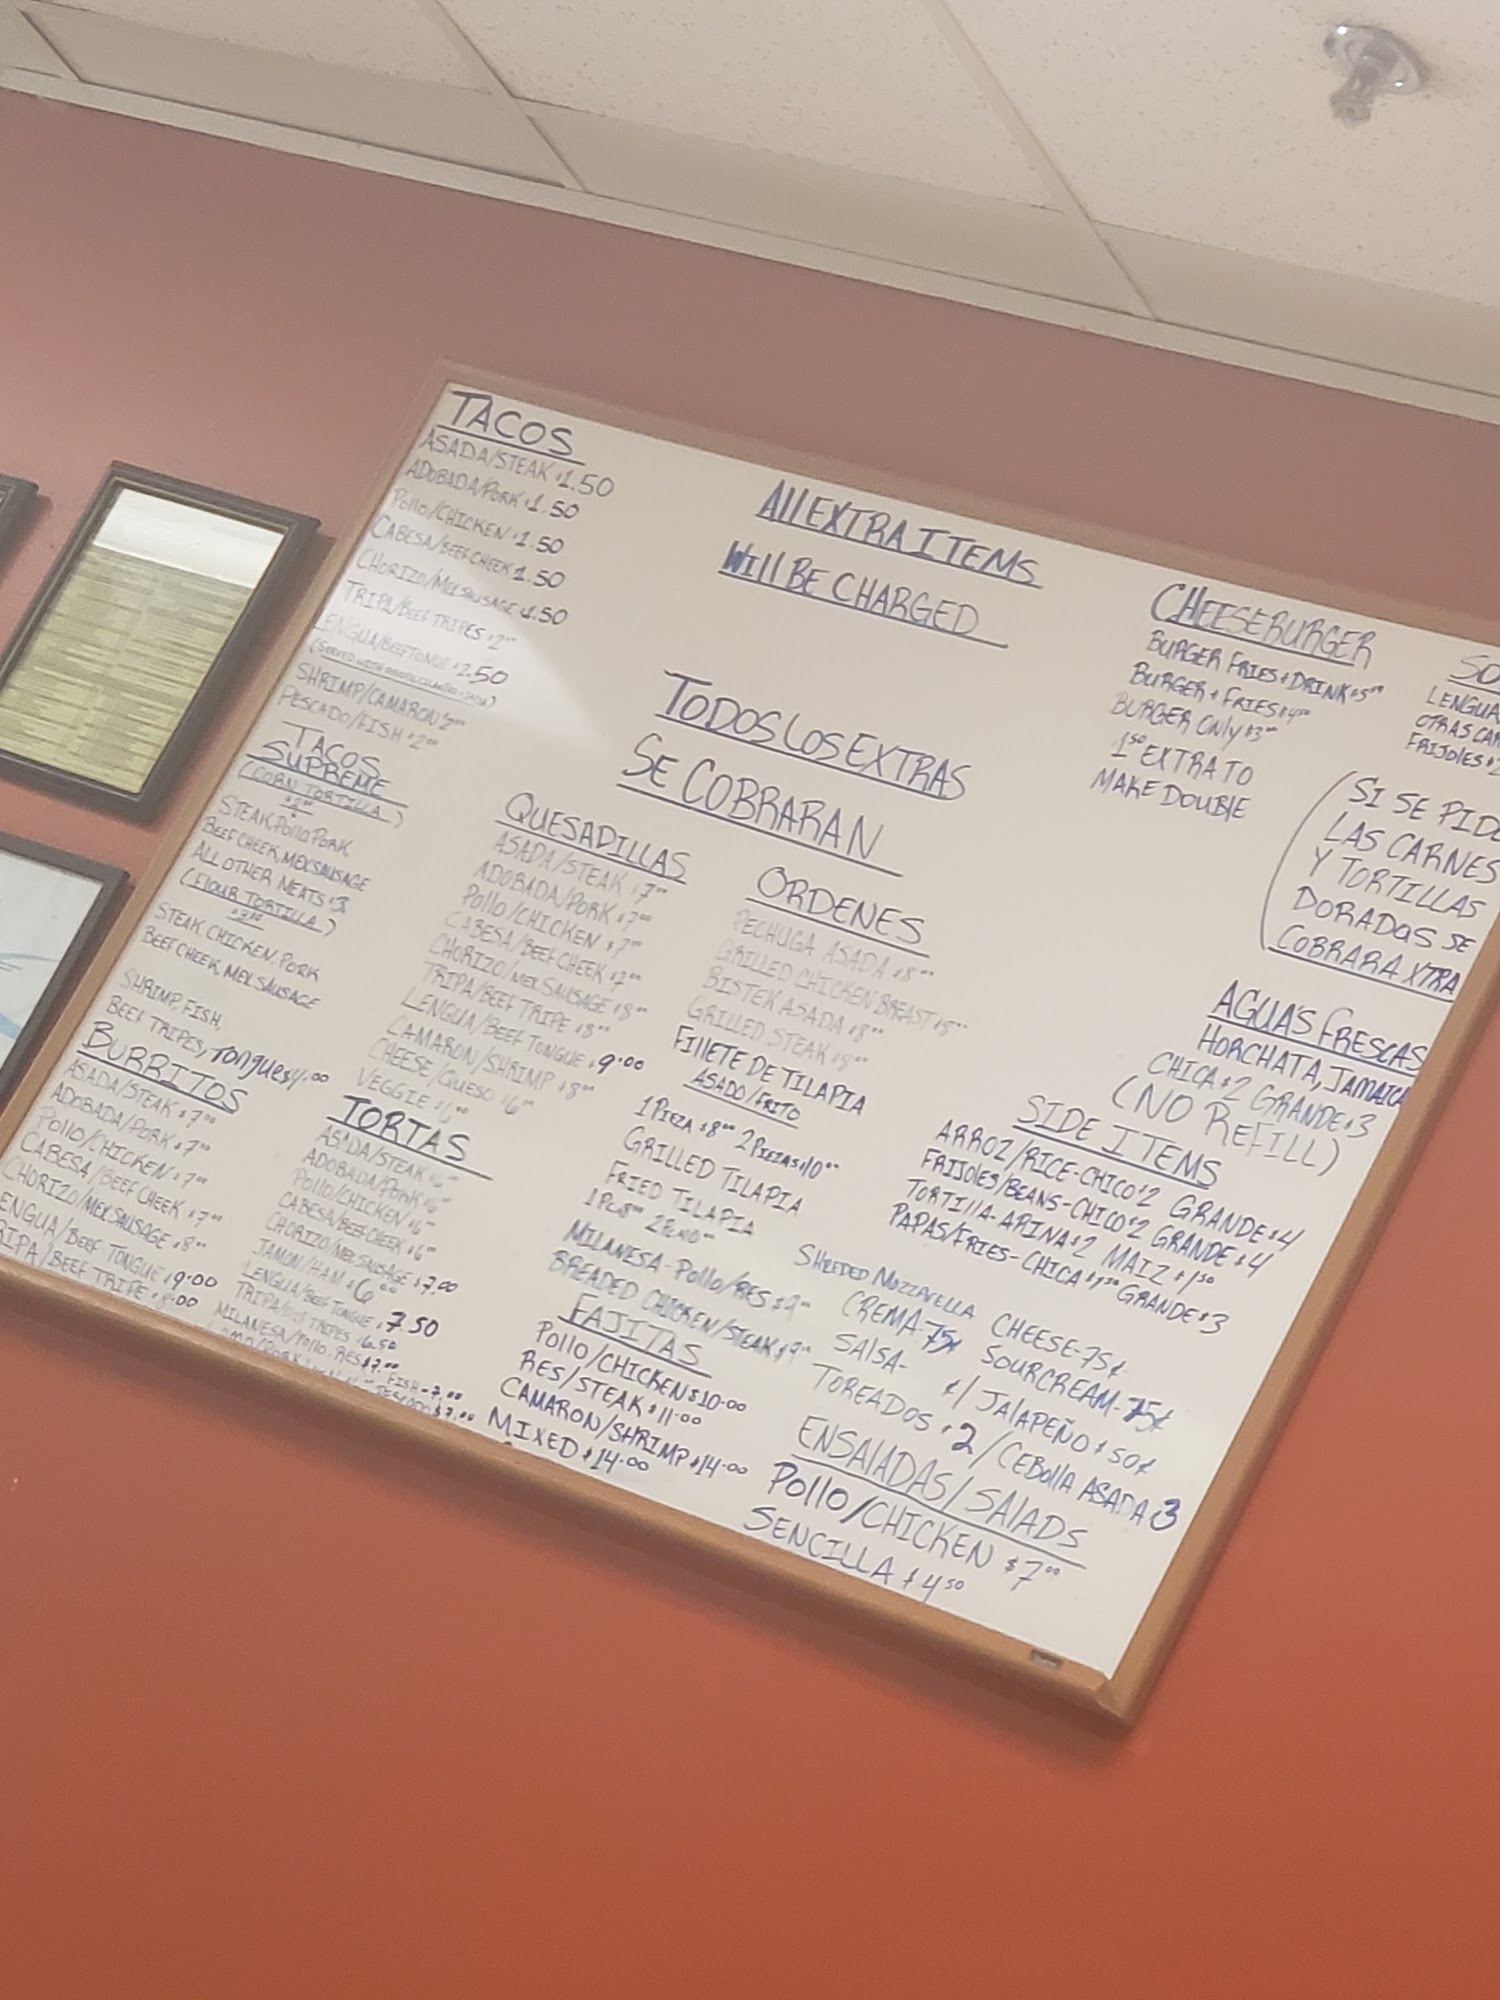 TACOS
ASADA/STEAK $1.50
ADOBADA/PORK $1.50
POLLO/CHICKEN $1.50
CABESA/BEEF CHEEK 1.50
CHORIZO/MEX SAUSAGE $1.50
TRIPA/BEEF TRIPES $2⁰⁰
LENGUA/BEEF TONGUE $2.50
(SERVED WITH
SHRIMP/CAMARON $2⁰⁰
PESCADO/FISH $2⁰⁰
TACOS
SUPREME
(CORN TORTILLA)
STEAK, POLLO, PORK
BEEF CHEEK, MEX SAUSAGE
ALL OTHER MEATS $3
(FLOUR TORTILLA)
STEAK, CHICKEN, PORK
BEEF CHEEK, MEX SAUSAGE
SHRIMP, FISH,
BEEF TRIPES, TONGUE $4.00
BURRITOS
ASADA/STEAK $7⁰⁰
ADOBADA/PORK $7⁰⁰
POLLO/CHICKEN $7⁰⁰
CABESA/BEEF CHEEK $7⁰⁰
CHORIZO/MEX SAUSAGE $8⁰⁰
LENGUA/BEEF TONGUE $9.00
TRIPA/BEEF TRIPE $8.00
All EXTRA ITEMS
Will BE CHARGED
TODOS LOS EXTRAS
SE COBRARAN
QUESADILLAS
ASADA/STEAK $7⁰⁰
ADOBADA/PORK $7⁰⁰
POLLO/CHICKEN $7⁰⁰
CABESA/BEEF CHEEK $7⁰⁰
CHORIZO/MEX SAUSAGE $8⁰⁰
TRIPA/BEEF TRIPE $8⁰⁰
LENGUA/BEEF TONGUE $9.00
CAMARON/SHRIMP $8⁰⁰
CHEESE/QUESO $6⁰⁰
VEGGIE $6⁰⁰
TORTAS
ASADA/STEAK $6⁰⁰
ADOBADA/PORK $6⁰⁰
POLLO/CHICKEN $6⁰⁰
CABESA/BEEF CHEEK $6⁰⁰
CHORIZO/MEX SAUSAGE $7.00
JAMON/HAM $6⁰⁰
LENGUA/BEEF TONGUE $7.50
TRIPA/BEEF TRIPES $6.50
MILANESA/POLLO-RES $7.00
FISH-7.00
$7.00
ORDENES
PECHUGA ASADA $8⁰⁰
GRILLED CHICKEN BREAST $8⁰⁰
BISTEK ASADA $8⁰⁰
GRILLED STEAK $8⁰⁰
FILLETE DE TILAPIA
ASADO/FRITO
1 PIEZA $8⁰⁰ 2 PIEZAS $10⁰⁰
GRILLED TILAPIA
FRIED TILAPIA
MILANESA-POLLO/RES $9⁰⁰
BREADED CHICKEN/STEAK $9⁰⁰
FAJITAS
POLLO/CHICKEN $10.00
RES/STEAK $11.00
CAMARON/SHRIMP $14.00
MIXED $14.00
CHEESEBURGER
BURGER FRIES+DRINK $5⁵⁰
BURGER+FRIES $4⁵⁰
BURGER ONLY $3⁰⁰
1⁵⁰ EXTRA TO
MAKE DOUBLE
SO
LENGUA
OTRAS CAR
FRIJOLES $2
(SI SE PIDE
LAS CARNES
Y TORTILLAS
DORADAS SE
COBRARA XTRA
AGUA'S FRESCAS
HORCHATA, JAMAICA
CHICA $2 GRANDE $3
(NO REFILL)
SIDE ITEMS
ARROZ/RICE-CHICO $2 GRANDE $4
FRIJOLES/BEANS-CHICO $2 GRANDE $4
TORTILLA-ARINA $2 MAIZ $1⁵⁰
PAPAS/FRIES-CHICA $1⁵⁰ GRANDE $3
SHREDED MOZZARELLA CHEESE-75¢
CREMA-75¢ SOURCREAM-75¢
SALSA- ¢/JALAPEÑO $50¢
TOREADOS $2/CEBOLLA ASADA $3
ENSALADAS/SALADS
POLLO/CHICKEN $7⁰⁰
SENCILLA $4⁵⁰